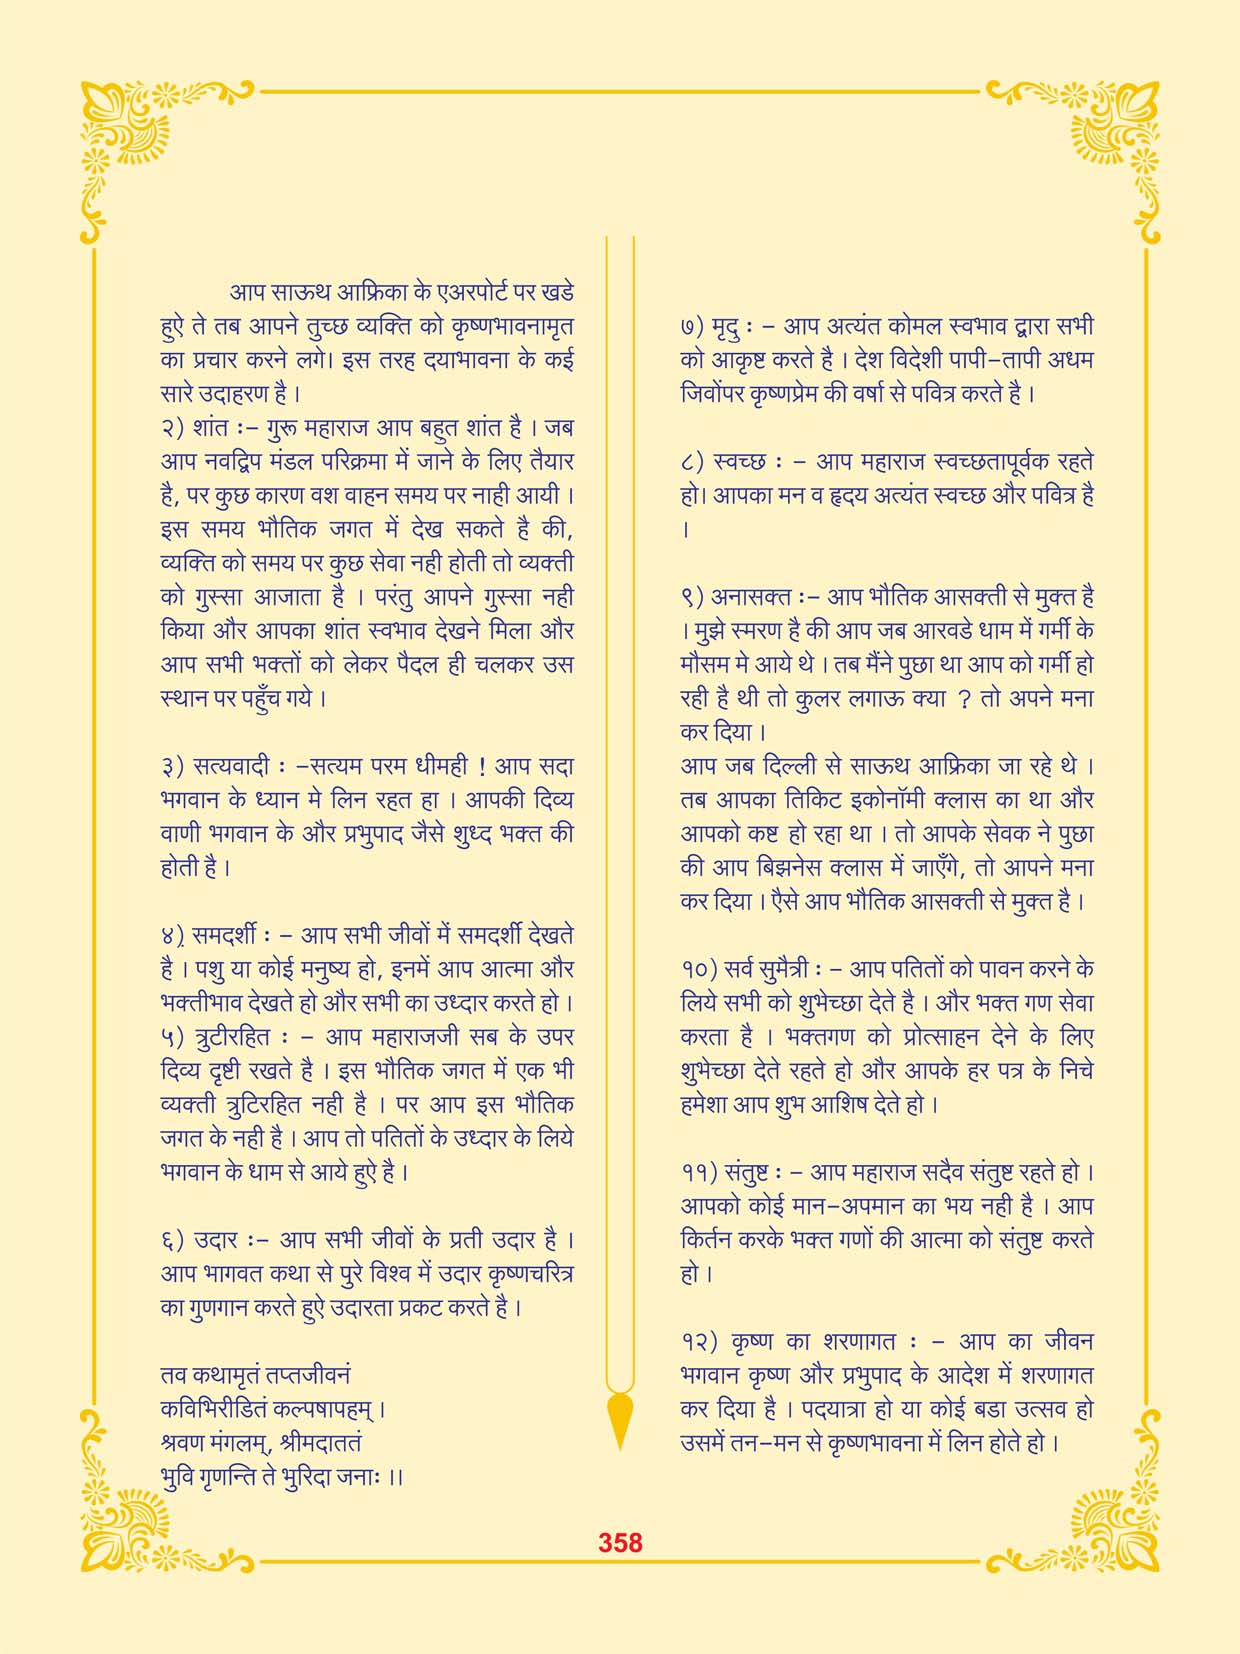 आप साऊथ आफ्रिका के एअरपोर्ट पर खडे
हुऐ ते तब आपने तुच्छ व्यक्ति को कृष्णभावनामृत
का प्रचार करने लगे। इस तरह दयाभावना के कई
सारे उदाहरण है ।
२) शांत :– गुरू महाराज आप बहुत शांत है । जब
आप नवद्विप मंडल परिक्रमा में जाने के लिए तैयार
है, पर कुछ कारण वश वाहन समय पर नाही आयी ।
इस समय भौतिक जगत में देख सकते है की,
व्यक्ति को समय पर कुछ सेवा नही होती तो व्यक्ती
को गुस्सा आजाता है । परंतु आपने गुस्सा नही
किया और आपका शांत स्वभाव देखने मिला और
आप सभी भक्तों को लेकर पैदल ही चलकर उस
स्थान पर पहुँच गये ।
३) सत्यवादी : –सत्यम परम धीमही ! आप सदा
भगवान के ध्यान मे लिन रहत हा । आपकी दिव्य
वाणी भगवान के और प्रभुपाद जैसे शुध्द भक्त की
होती है ।
४) समदर्शी : – आप सभी जीवों में समदर्शी देखते
है । पशु या कोई मनुष्य हो, इनमें आप आत्मा और
भक्तीभाव देखते हो और सभी का उध्दार करते हो ।
५) त्रुटीरहित : – आप महाराजजी सब के उपर
दिव्य दृष्टी रखते है । इस भौतिक जगत में एक भी
व्यक्ती त्रुटिरहित नही है । पर आप इस भौतिक
जगत के नही है । आप तो पतितों के उध्दार के लिये
भगवान के धाम से आये हुऐ है ।
६) उदार :– आप सभी जीवों के प्रती उदार है ।
आप भागवत कथा से पुरे विश्व में उदार कृष्णचरित्र
का गुणगान करते हुऐ उदारता प्रकट करते है ।
तव कथामृतं तप्तजीवनं
कविभिरीडितं कल्पषापहम् ।
श्रवण मंगलम्, श्रीमदाततं
भुवि गृणन्ति ते भुरिदा जनाः ।।
७) मृदु : – आप अत्यंत कोमल स्वभाव द्वारा सभी
को आकृष्ट करते है । देश विदेशी पापी–तापी अधम
जिवोंपर कृष्णप्रेम की वर्षा से पवित्र करते है ।
८) स्वच्छ : – आप महाराज स्वच्छतापूर्वक रहते
हो। आपका मन व हृदय अत्यंत स्वच्छ और पवित्र है
।
९) अनासक्त :– आप भौतिक आसक्ती से मुक्त है
। मुझे स्मरण है की आप जब आरवडे धाम में गर्मी के
मौसम मे आये थे । तब मैंने पुछा था आप को गर्मी हो
रही है थी तो कुलर लगाऊ क्या ? तो अपने मना
कर दिया ।
आप जब दिल्ली से साऊथ आफ्रिका जा रहे थे ।
तब आपका तिकिट इकोनॉमी क्लास का था और
आपको कष्ट हो रहा था । तो आपके सेवक ने पुछा
की आप बिझनेस क्लास में जाएँगे, तो आपने मना
कर दिया । एैसे आप भौतिक आसक्ती से मुक्त है ।
१०) सर्व सुमैत्री : – आप पतितों को पावन करने के
लिये सभी को शुभेच्छा देते है । और भक्त गण सेवा
करता है । भक्तगण को प्रोत्साहन देने के लिए
शुभेच्छा देते रहते हो और आपके हर पत्र के निचे
हमेशा आप शुभ आशिष देते हो ।
११) संतुष्ट : – आप महाराज सदैव संतुष्ट रहते हो ।
आपको कोई मान–अपमान का भय नही है । आप
किर्तन करके भक्त गणों की आत्मा को संतुष्ट करते
हो ।
१२) कृष्ण का शरणागत : – आप का जीवन
भगवान कृष्ण और प्रभुपाद के आदेश में शरणागत
कर दिया है । पदयात्रा हो या कोई बडा उत्सव हो
उसमें तन–मन से कृष्णभावना में लिन होते हो ।
358